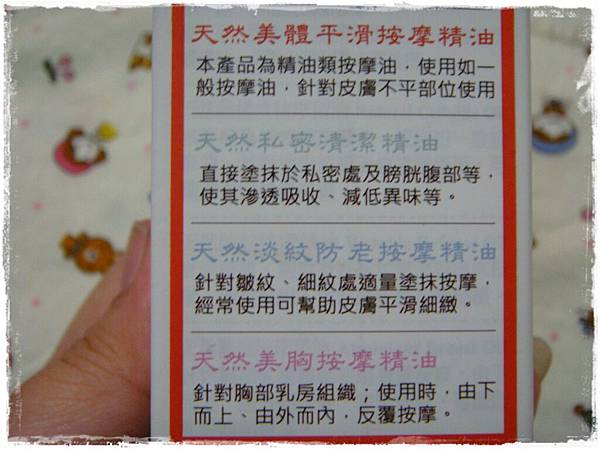 天然美體平滑按摩精油
本產品為精油類按摩油，使用如一
般按摩油，針對皮膚不平部位使用
天然私密清潔精油
直接塗抹於私密處及膀胱腹部等，
使其滲透吸收、減低異味等。
天然淡紋防老按摩精油
針對皺紋、細紋處適量塗抹按摩，
經常使用可幫助皮膚平滑細緻。
天然美胸按摩精油
針對胸部乳房組織；使用時，由下
而上、由外而內，反覆按摩。